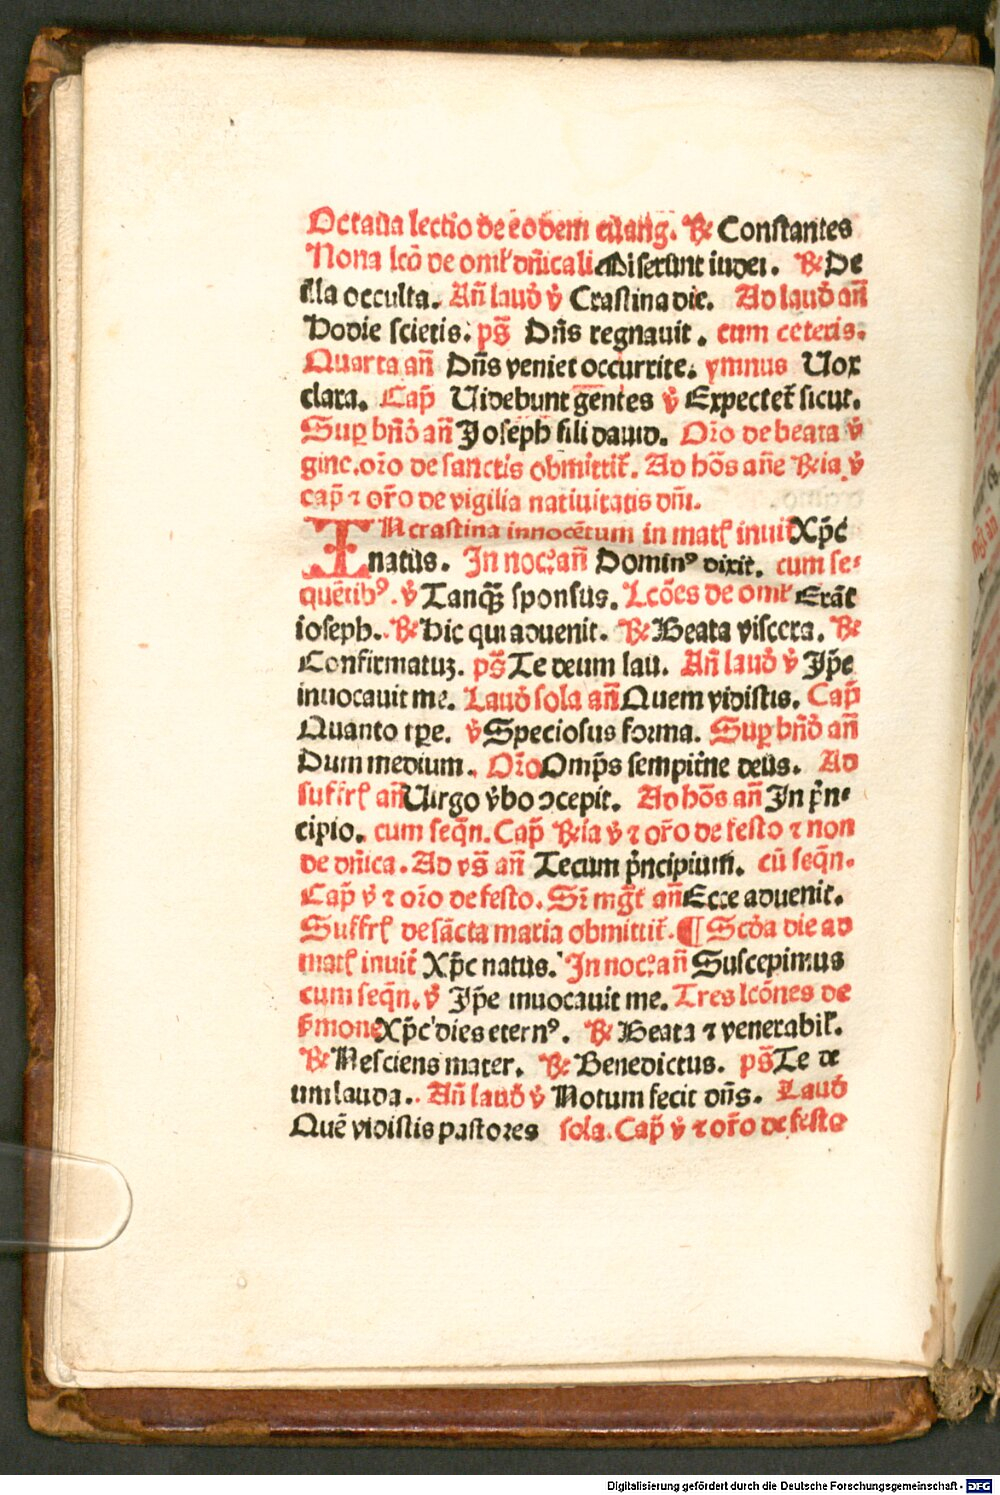 Octaua lectio de eodem euāg. ℟ Constantes
Nona lcō de omĺ dn̄icali Miserunt iudei. ℟ De
illa occulta. An̄ laud̄ v̾ Crastina die. Ad laud̄ an̄
Hodie scietis. ps̄ Dn̄s regnauit. cum ceteris.
Quarta an̄ Dn̄s veniet occurrite. ymnus Uox
clara. Cap̄ Uidebunt gentes v̾ Expectet̄ sicut.
Suꝑ bn̄d̄ an̄ Joseph fili dauid. Or̄o de beata v̾
gine. or̄o de sanctis obmittit̄. Ad hōs an̄e ℟ia v̾
cap̄ ⁊ or̄o de vigilia natiuitatis dn̄i.
IN crastina innocētum in matĺ inuit̄ Xp̄c
natus. In noc° an̄ Dominꝰ dixit. cum se⸗
quētibꝰ. v̾ Tanq̄ sponsus. Lcōes de omĺ Erāt
ioseph. ℟ Hic qui aduenit. ℟ Beata viscera. ℟
Confirmatuꝫ. ps̄ Te deum lau. An̄ laud̄ v̾ Ip̄e
inuocauit me. Laud̄ sola an̄ Quem vidistis. Cap̄
Quanto tꝑe. v̾ Speciosus forma. Suꝑ bn̄d̄ an̄
Dum medium. Or̄o Omp̄s sempit̄ne deus. Ad
suffrĺ an̄ Uirgo v̾bo ɔcepit. Ad hōs an̄ In p̄n⸗
cipio. cum seqn̄. Cap̄ ℟ia v̾ ⁊ or̄o de festo ⁊ non
de dn̄ica. Ad vs̄ an̄ Tecum p̄ncipium. cū seqn̄.
Cap̄ v̾ ⁊ or̄o de festo. Sr̄ mgt̄ an̄ Ecce aduenit.
Suffrĺ de sācta maria obmittit̄. ¶ Scd̄a die ad
matĺ inuit̄ Xp̄c natus. In noc° an̄ Suscepimus
cum seqn̄. v̾ Ip̄e inuocauit me. Tres lcōnes de
s̄mone Xp̄c dies eternꝰ. ℟ Beata ⁊ venerabiĺ.
℟ Nesciens mater. ℟ Benedictus. ps̄ Te de
um lauda. An̄ laud̄ v̾ Notum fecit dn̄s. Laud̄
Quē vidistis pastores sola. Cap̄ v̾ ⁊ or̄o de festo
Digitalisierung gefördert durch die Deutsche Forschungsgemeinschaft - DFG